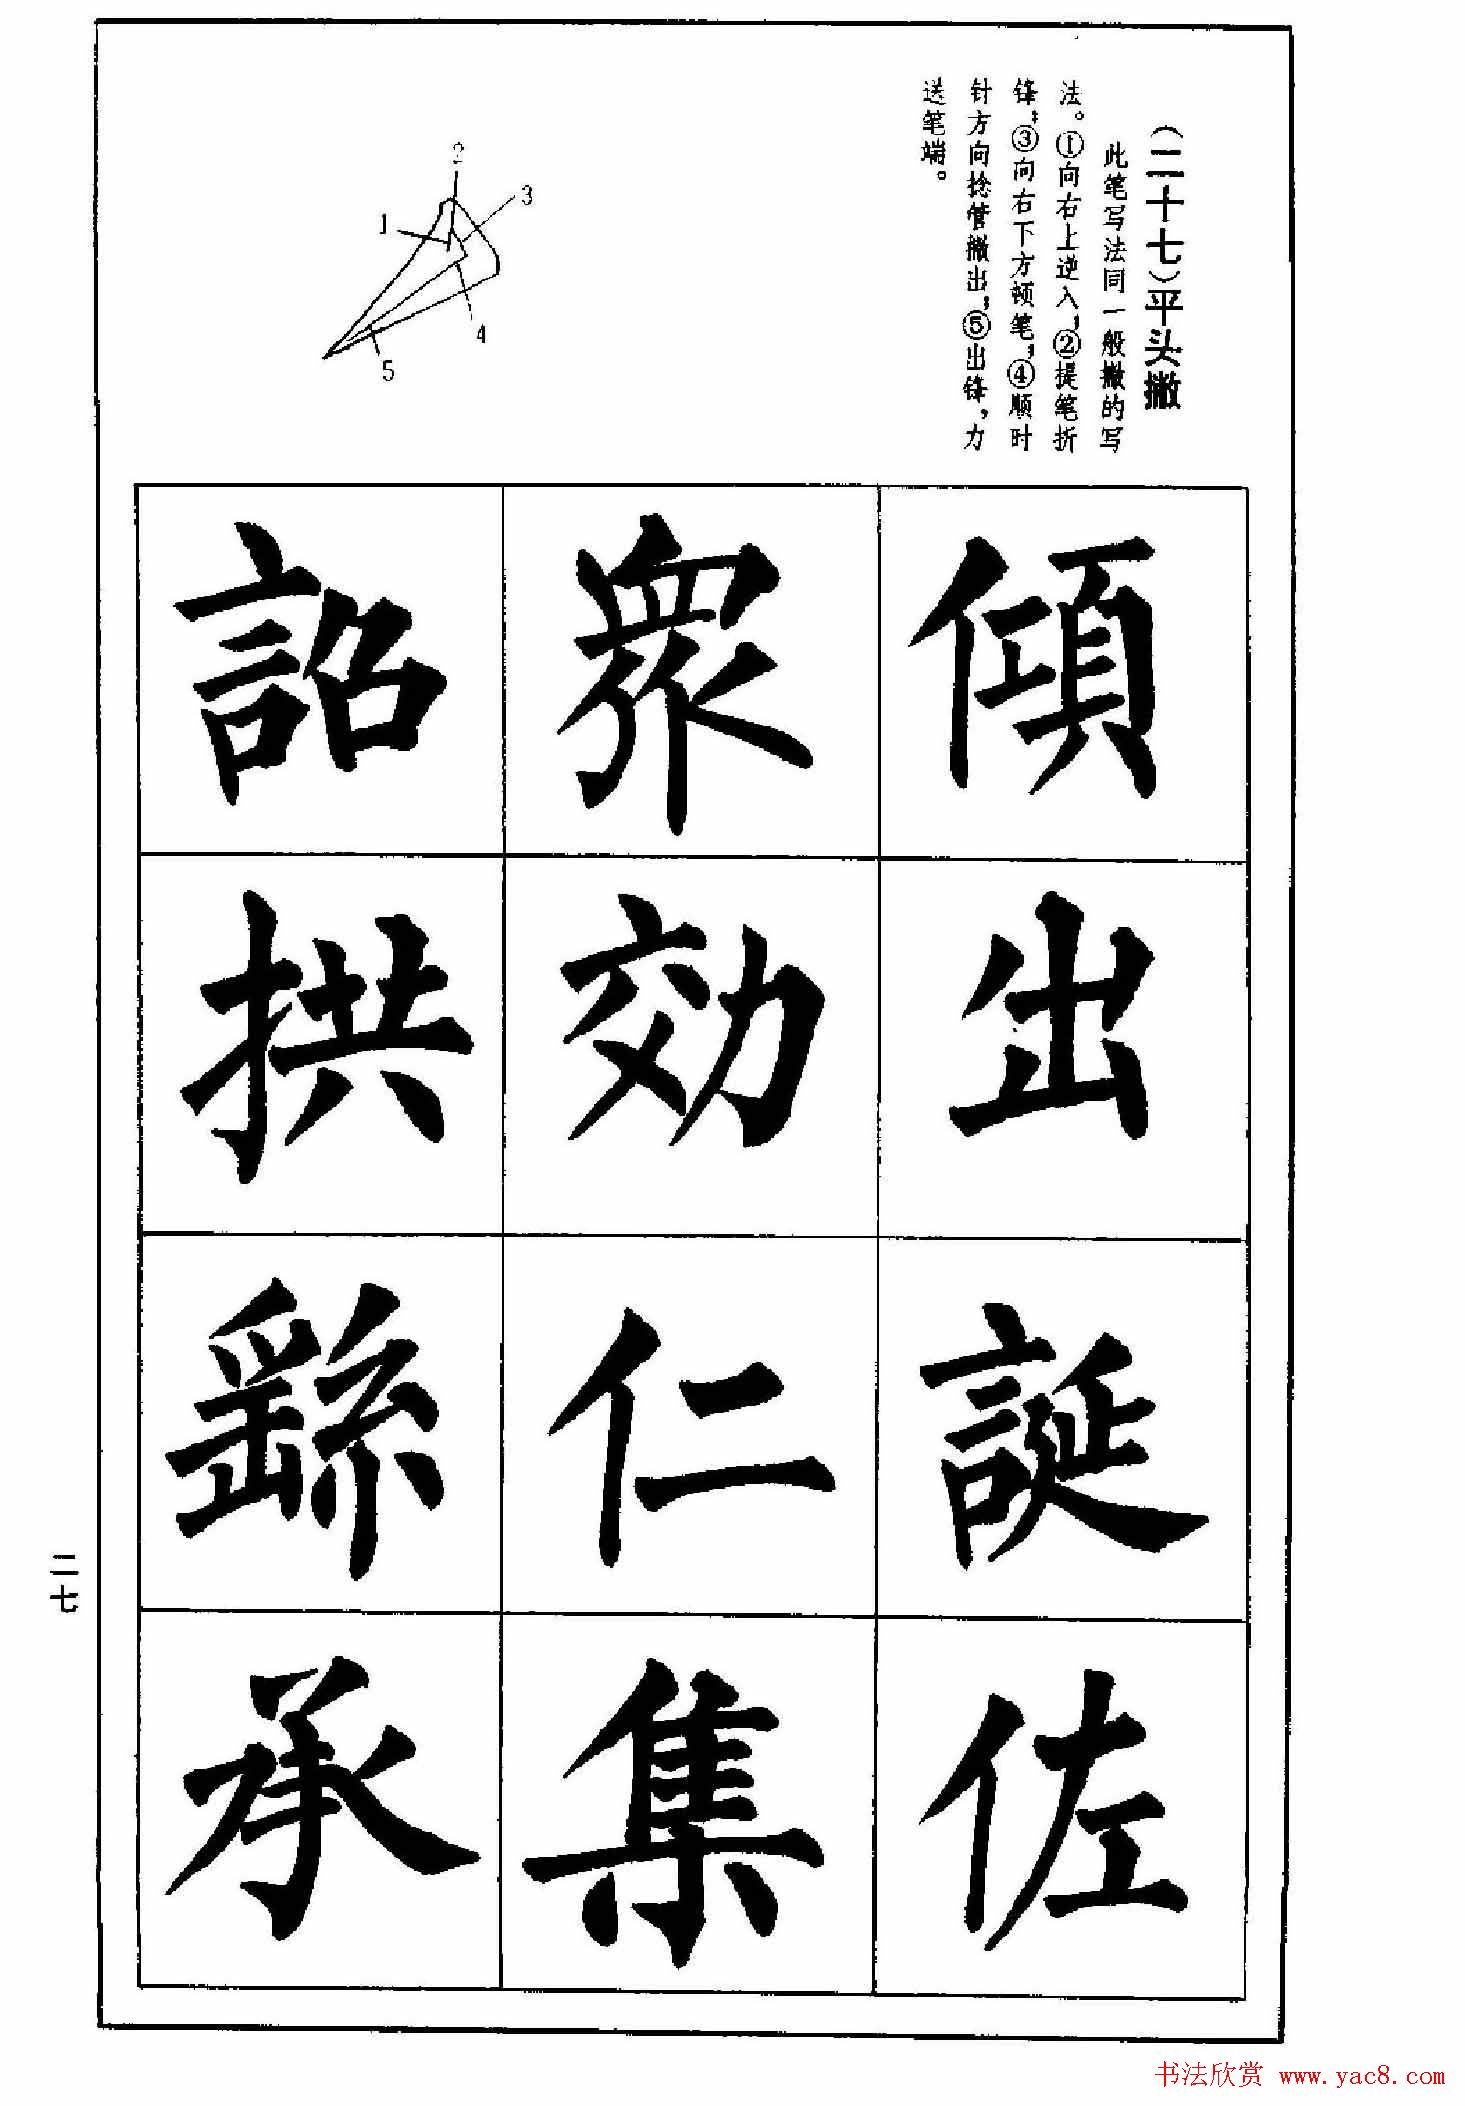 (二十七)平头撇
此笔写法同一般撇的写
法。①向右上逆入；②提笔折
锋；③向右下方顿笔；④顺时
针方向捻管撇出；⑤出锋，力
送笔端。
2
3
1
4
5
傾出誕佐
衆効仁集
詔拱繇承
二七
书法欣赏 www.yac8.com